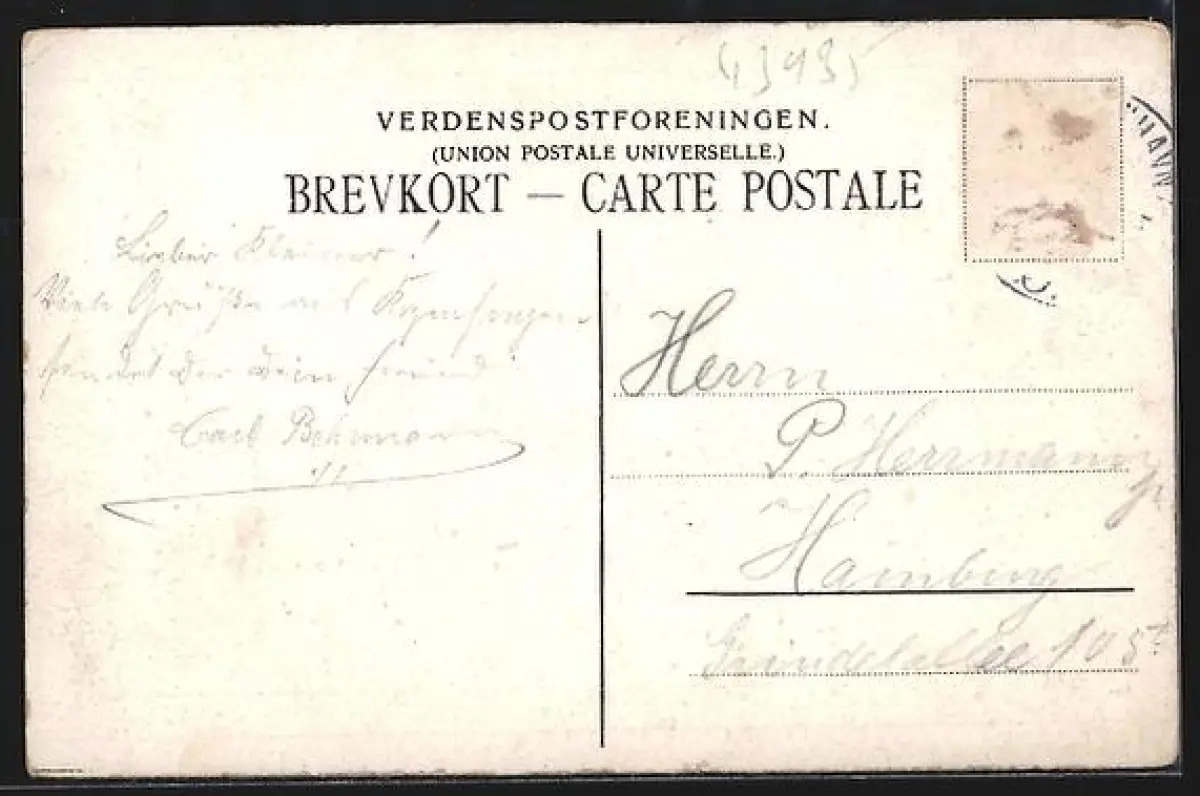 43935
VERDENSPOSTFORENINGEN.
(UNION POSTALE UNIVERSELLE.)
BREVKORT — CARTE POSTALE
HAVN
Lieber Kleiner!
Viele Grüße aus Kopenhagen
sendet Dir Dein Freund
Carl Behrmann
Herrn
P. Herrmann
Hamburg
Grindelallee 105